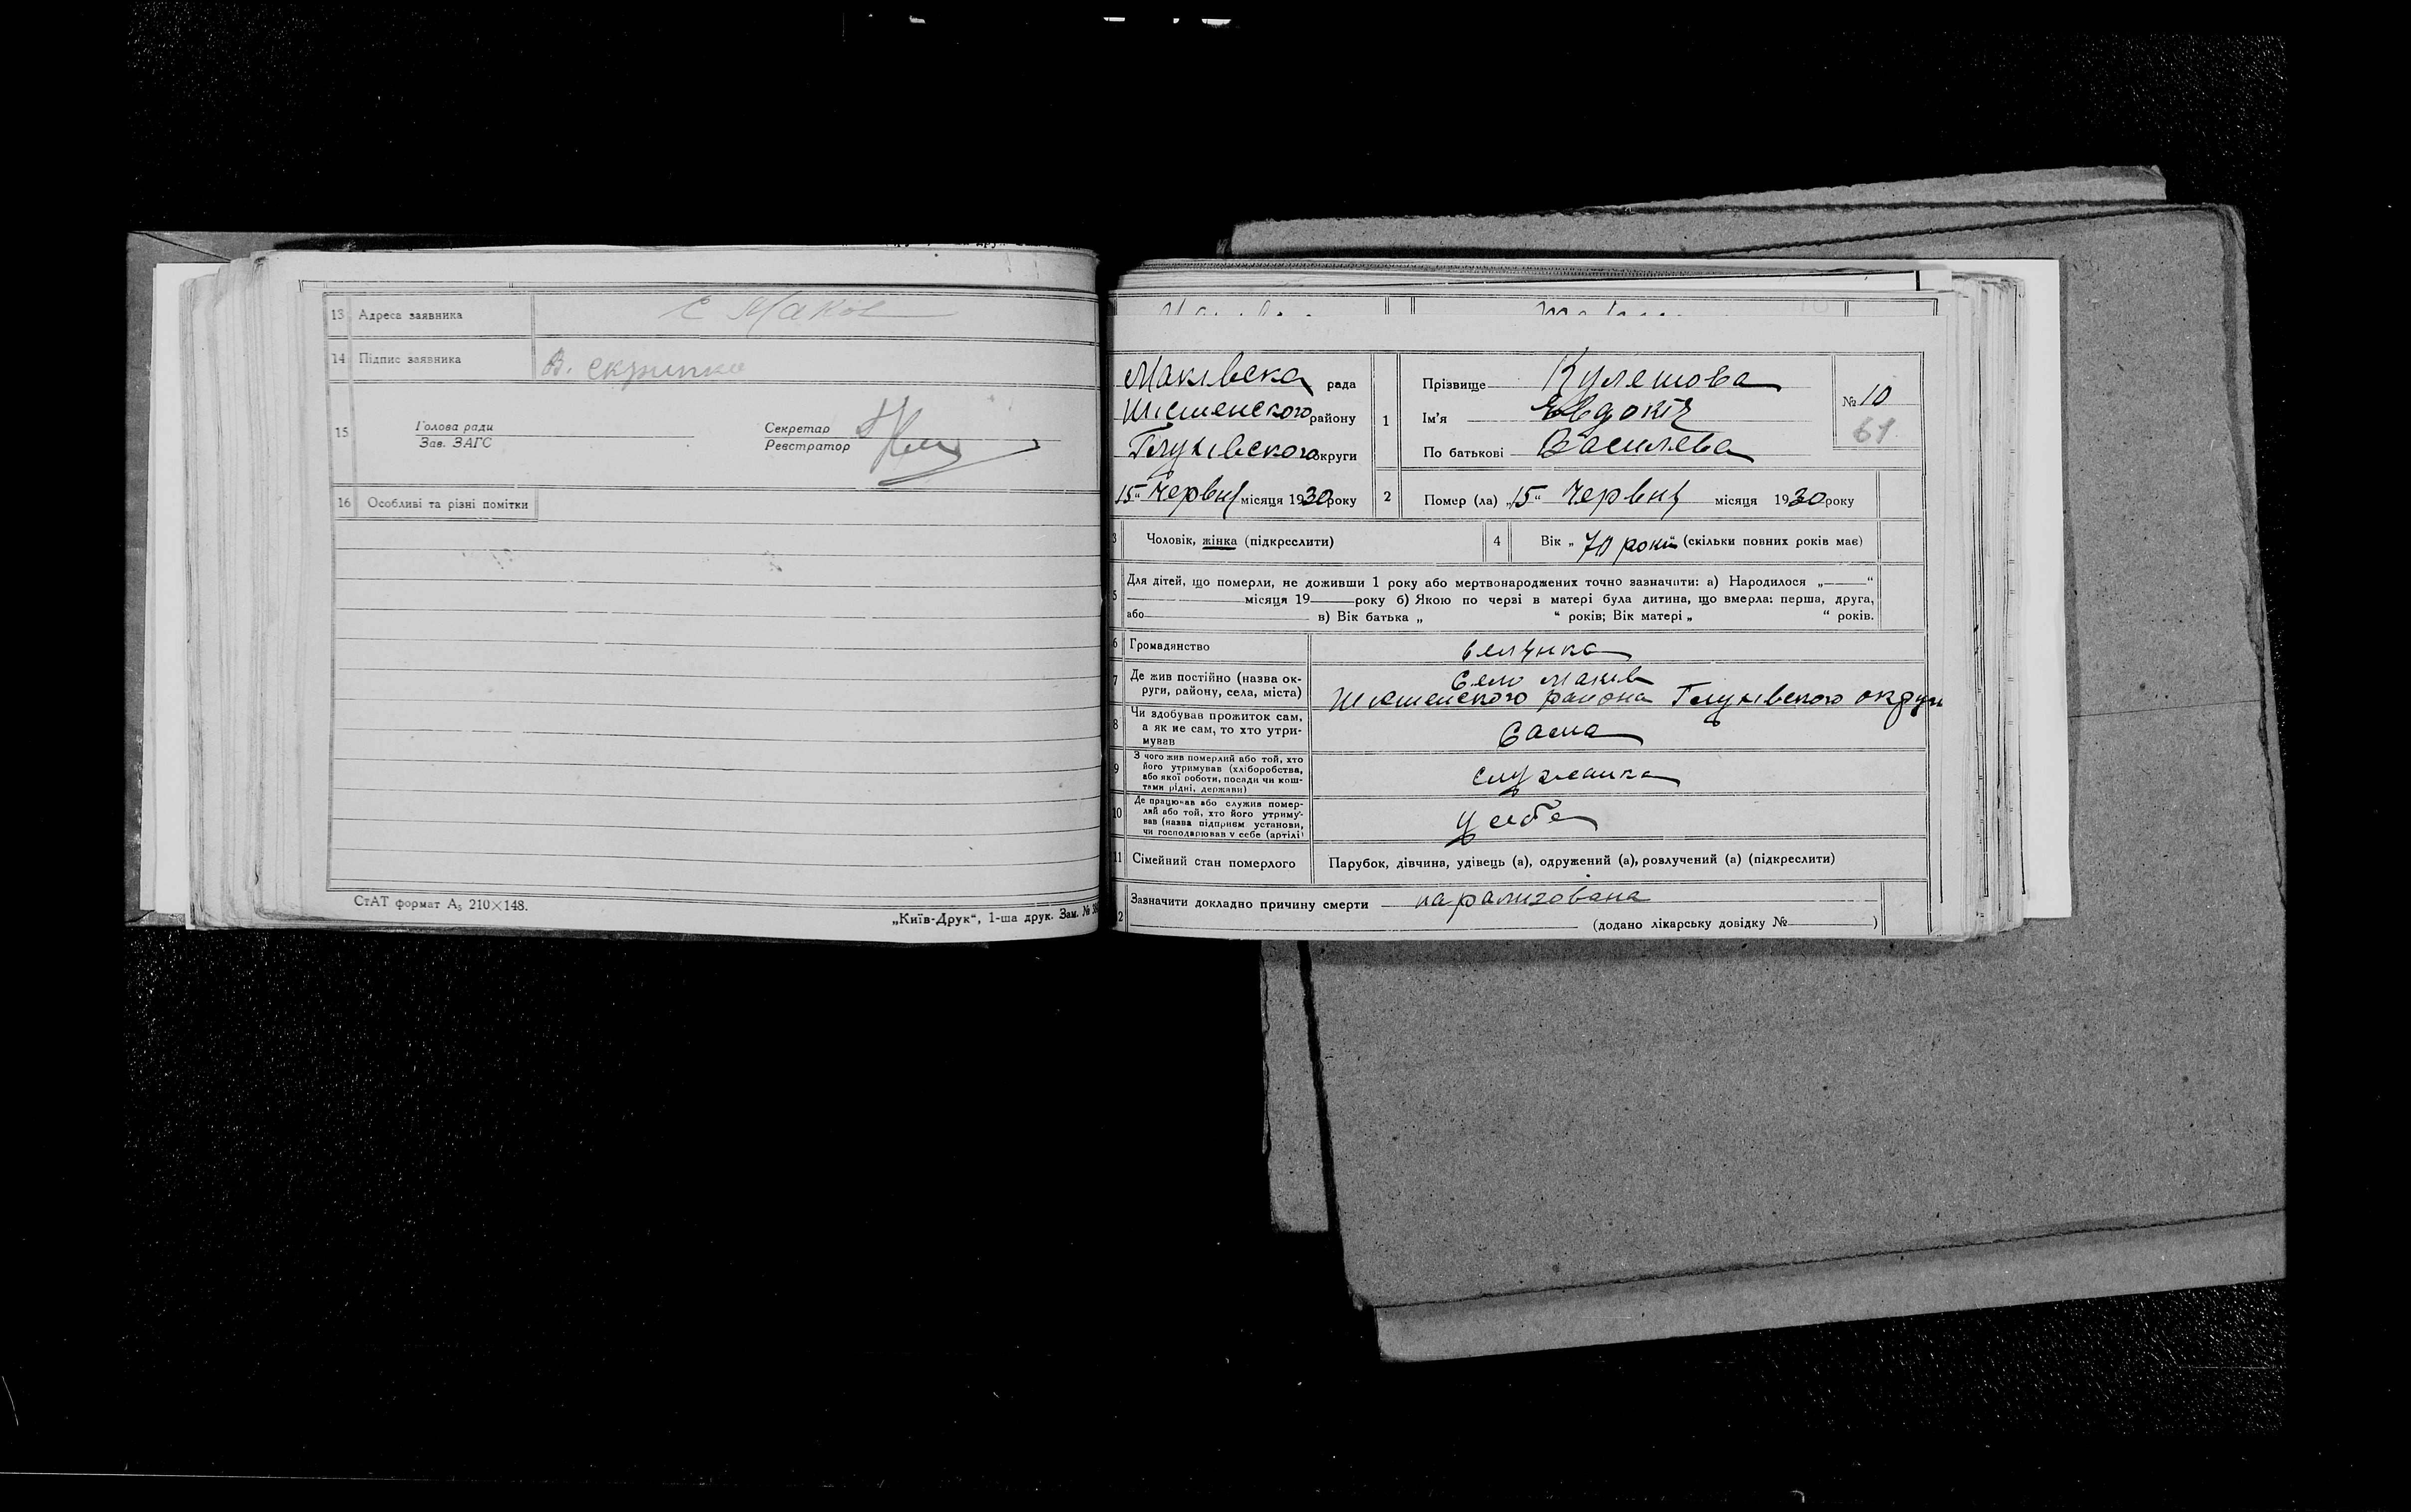 13 Адреса заявника с Маков
14 Підпис заявника В. Скрипка
15 Голова ради Секретар
Зав. ЗАГС Реєстратор
16 Особливі та різні помітки
СтАТ формат А₅ 210×148.
„Київ-Друк“, 1-ша друк. Зам. №
Маківська рада
Шістенского району
Глухівского округи
15“ Червня місяця 1930 року
1 Прізвище Кулешова
Ім'я Євдокія
По батькові Васильева
№ 10
61
2 Помер (ла) „15“ Червня місяця 1930 року
3 Чоловік, жінка (підкреслити)
4 Вік „70 років“ (скільки повних років має)
5 Для дітей, що померли, не доживши 1 року або мертвонароджених точно зазначити: а) Народилося „ “
місяця 19 року б) Якою по черзі в матері була дитина, що вмерла: перша, друга,
або в) Вік батька „ “ років; Вік матері „ “ років.
6 Громадянство селянка
7 Де жив постійно (назва ок-
руги, району, села, міста)
Село Маків
Шістенского района Глухівского округи
8 Чи здобував прожиток сам,
а як не сам, то хто утри-
мував
Сама
9 З чого жив померлий або той, хто
його утримував (хліборобства,
або якої роботи, посади чи кош-
тами рідні, держави)
10 Де працював або служив помер-
лий або той, хто його утриму-
вав (назва підприєм установи,
чи господарював у себе (артілі)
у себе
11 Сімейний стан померлого Парубок, дівчина, удівець (а), одружений (а), розлучений (а) (підкреслити)
12 Зазначити докладно причину смерти парализована
(додано лікарську довідку № )